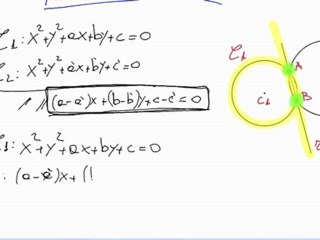 C1: x²+y²+ax+by+c=0
C2: x²+y²+a'x+b'y+c'=0
(a-a')x+(b-b')y+c-c'=0
1: x²+y²+ax+by+c=0
: (a-a')x+(
C1
A
B
c1